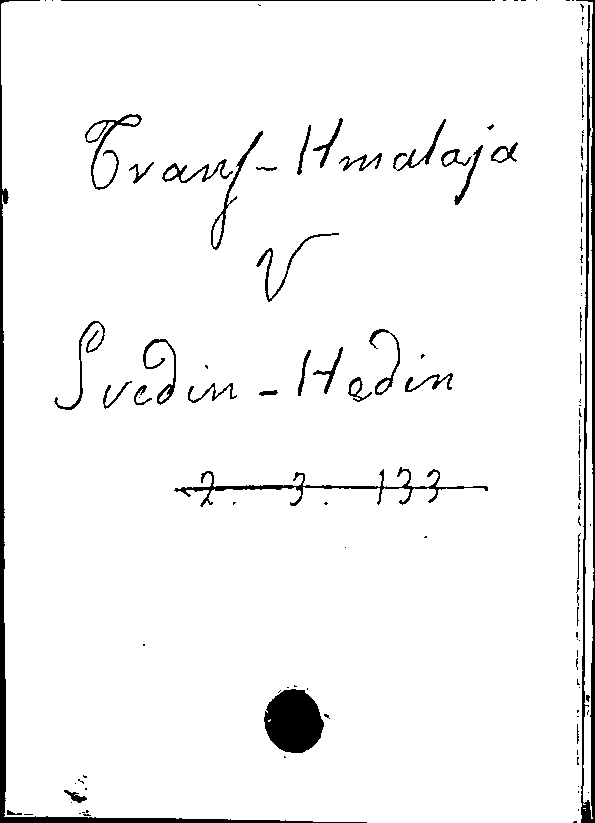 Trans-Hmalaja
V
Svedin-Hedin
2. 3. 133